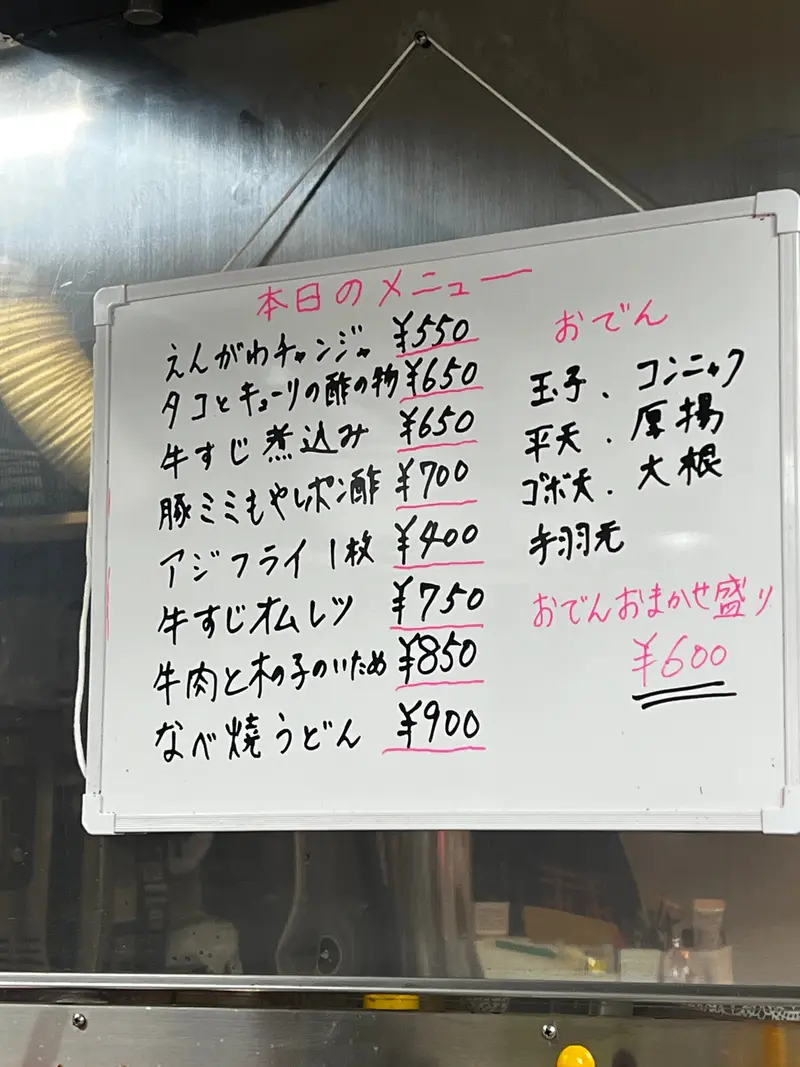 本日のメニュー
えんがわチャンジャ ¥550
タコとキューリの酢の物 ¥650
牛すじ煮込み ¥650
豚ミミもやしポン酢 ¥700
アジフライ 1枚 ¥400
牛すじオムレツ ¥750
牛肉と木の子のいため ¥850
なべ焼うどん ¥900
おでん
玉子.コンニャク
平天.厚揚
ゴボ天.大根
手羽元
おでんおまかせ盛り
¥600